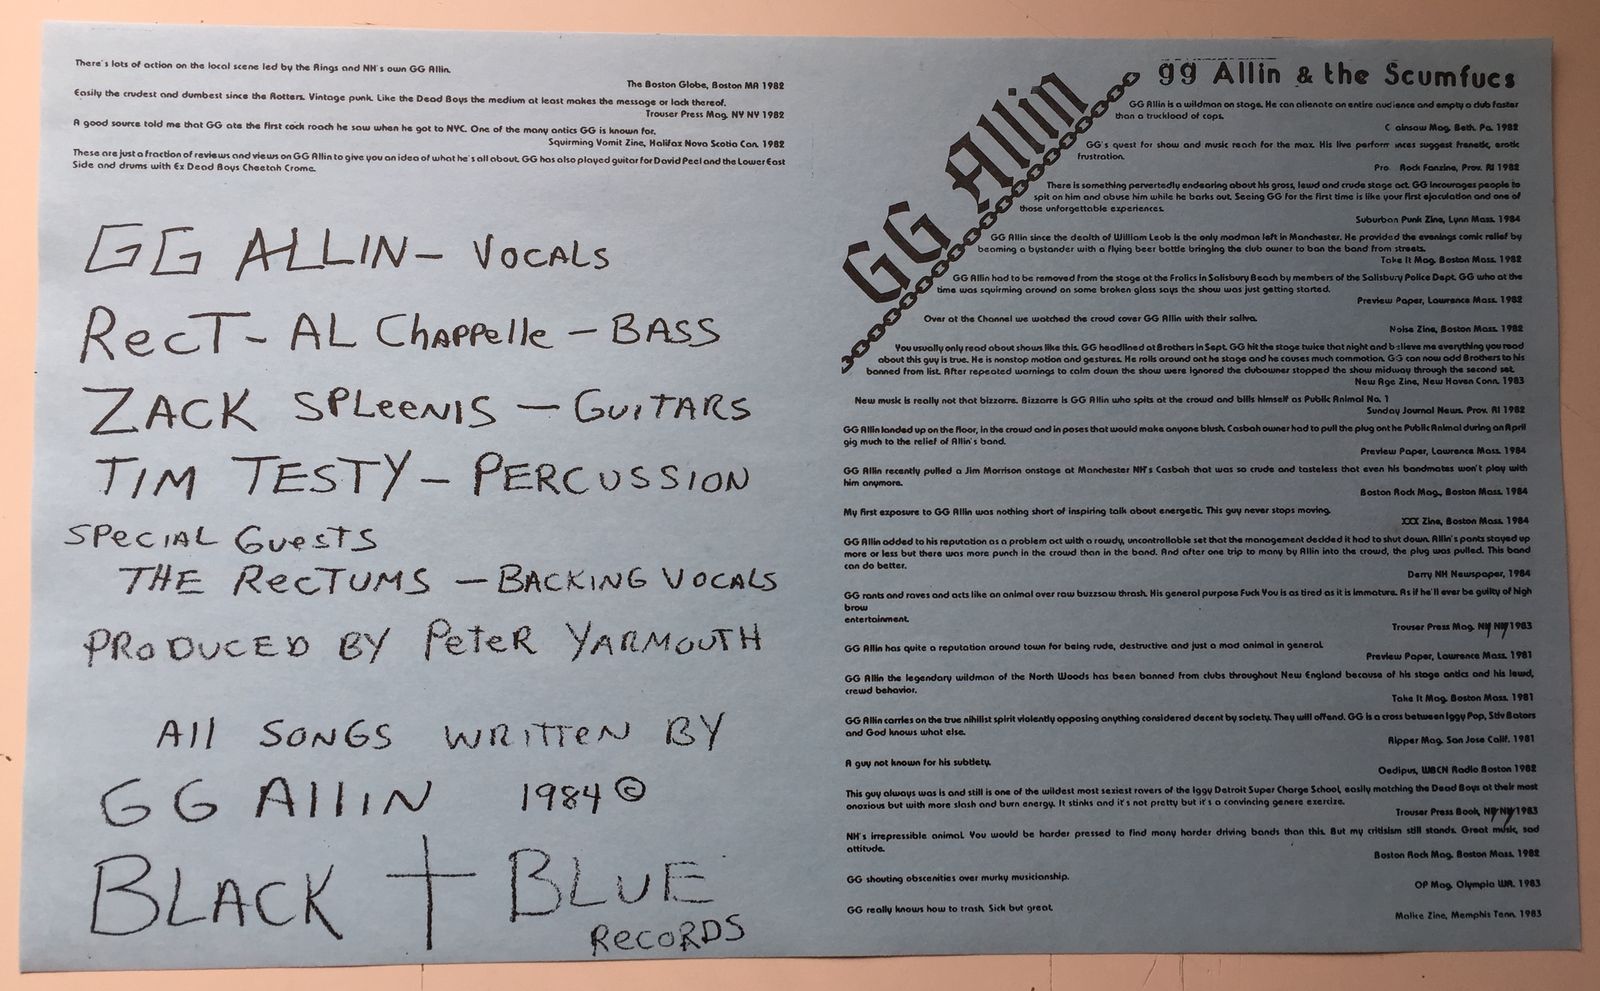 There's lots of action on the local scene led by the Rings and NH's own GG Allin.
The Boston Globe, Boston MA 1982
Easily the crudest and dumbest since the Rotters. Vintage punk. Like the Dead Boys the medium at least makes the message or lack thereof.
Trouser Press Mag. NY NY 1982
A good source told me that GG ate the first cock roach he saw when he got to NYC. One of the many antics GG is known for.
Squirming Vomit Zine, Halifax Nova Scotia Can. 1982
These are just a fraction of reviews and views on GG Allin to give you an idea of what he's all about. GG has also played guitar for David Peel and the Lower East
Side and drums with Ex Dead Boys Cheetah Crome.
GG ALLIN - VOCALS
RecT - AL Chappelle - BASS
ZACK SPLeeNIS - GUITARS
TIM TESTY - PERCUSSION
SPECIAL GUESTS
THE RecTUMS - BACKING VOCALS
PRODUCED BY PeTeR YARMOUTH
All SONGS WRITTeN BY
GG AllIN 1984 ©
BLACK + BLUE
RecoRDS
GG Allin
gg Allin & the Scumfucs
GG Allin is a wildman on stage. He can alienate an entire audience and empty a club faster
than a truckload of cops.
C ainsaw Mag. Beth. Pa. 1982
GG's quest for show and music reach for the max. His live perform inces suggest frenetic, erotic
frustration.
Pro Rock Fanzine, Prov. RI 1982
There is something pervertedly endearing about his gross, lewd and crude stage act. GG incourages people to
spit on him and abuse him while he barks out. Seeing GG for the first time is like your first ejaculation and one of
those unforgettable experiences.
Suburban Punk Zine, Lynn Mass. 1984
GG Allin since the dealth of William Leob is the only madman left in Manchester. He provided the evenings comic relief by
beaming a bystander with a flying beer bottle bringing the club owner to ban the band from streets.
Take It Mag. Boston Mass. 1982
GG Allin had to be removed from the stage at the Frolics in Salisbury Beach by members of the Salisbury Police Dept. GG who at the
time was squirming around on some broken glass says the show was just getting started.
Preview Paper, Lawrence Mass. 1982
Over at the Channel we watched the croud cover GG Allin with their saliva.
Noise Zine, Boston Mass. 1982
You usually only read about shows like this. GG headlined at Brothers in Sept. GG hit the stage twice that night and believe me everything you read
about this guy is true. He is nonstop motion and gestures. He rolls around ont he stage and he causes much commotion. GG can now add Brothers to his
banned from list. After repeated warnings to calm down the show were ignored the clubowner stopped the show midway through the second set.
New Age Zine, New Haven Conn. 1983
New music is really not that bizzarre. Bizzarre is GG Allin who spits at the crowd and bills himself as Public Animal No. 1
Sunday Journal News. Prov. RI 1982
GG Allin landed up on the floor, in the crowd and in poses that would make anyone blush. Casbah owner had to pull the plug ont he Public Animal during an April
gig much to the relief of Allin's band.
Preview Paper, Lawrence Mass. 1984
GG Allin recently pulled a Jim Morrison onstage at Manchester NH's Casbah that was so crude and tasteless that even his bandmates won't play with
him anymore.
Boston Rock Mag., Boston Mass. 1984
My first exposure to GG Allin was nothing short of inspiring talk about energetic. This guy never stops moving.
XXX Zine, Boston Mass. 1984
GG Allin added to his reputation as a problem act with a rowdy, uncontrollable set that the management decided it had to shut down. Allin's pants stayed up
more or less but there was more punch in the crowd than in the band. And after one trip to many by Allin into the crowd, the plug was pulled. This band
can do better.
Derry NH Newspaper, 1984
GG rants and raves and acts like an animal over raw buzzsaw thrash. His general purpose Fuck You is as tired as it is immature. As if he'll ever be guilty of high
brow
entertainment.
Trouser Press Mag. NY NY 1983
GG Allin has quite a reputation around town for being rude, destructive and just a mad animal in general.
Preview Paper, Lawrence Mass. 1981
GG Allin the legendary wildman of the North Woods has been banned from clubs throughout New England because of his stage antics and his lewd,
crewd behavior.
Take It Mag. Boston Mass. 1981
GG Allin carries on the true nihilist spirit violently opposing anything considered decent by society. They will offend. GG is a cross between Iggy Pop, Stiv Bators
and God knows what else.
Ripper Mag. San Jose Calif. 1981
A guy not known for his subtlety.
Oedipus, WBCN Radio Boston 1982
This guy always was is and still is one of the wildest most sexiest ravers of the Iggy Detroit Super Charge School, easily matching the Dead Boys at their most
onoxious but with more slash and burn energy. It stinks and it's not pretty but it's a convincing genere exercize.
Trouser Press Book, NY NY 1983
NH's irrepressible animal. You would be harder pressed to find many harder driving bands than this. But my critisism still stands. Great music, sad
attitude.
Boston Rock Mag. Boston Mass. 1982
GG shouting obscenities over murky musicianship.
OP Mag. Olympia WA. 1983
GG really knows how to trash. Sick but great.
Malice Zine, Memphis Tenn. 1983